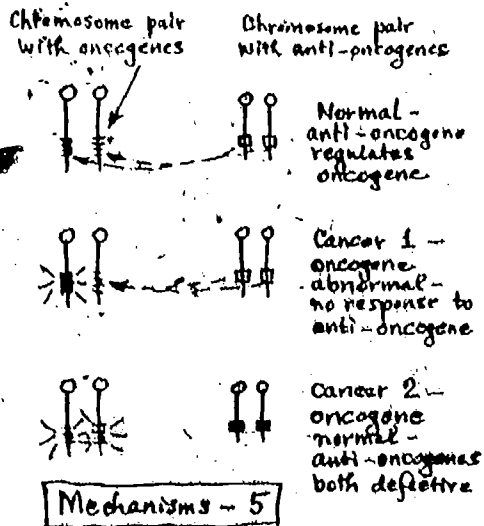 Chromosome pair
with oncogenes
Chromosome pair
with anti-oncogenes
Normal -
anti-oncogene
regulates
oncogene
Cancer 1 -
oncogene
abnormal -
no response to
anti-oncogene
Cancer 2 -
oncogene
normal -
anti-oncogenes
both defective
Mechanisms - 5